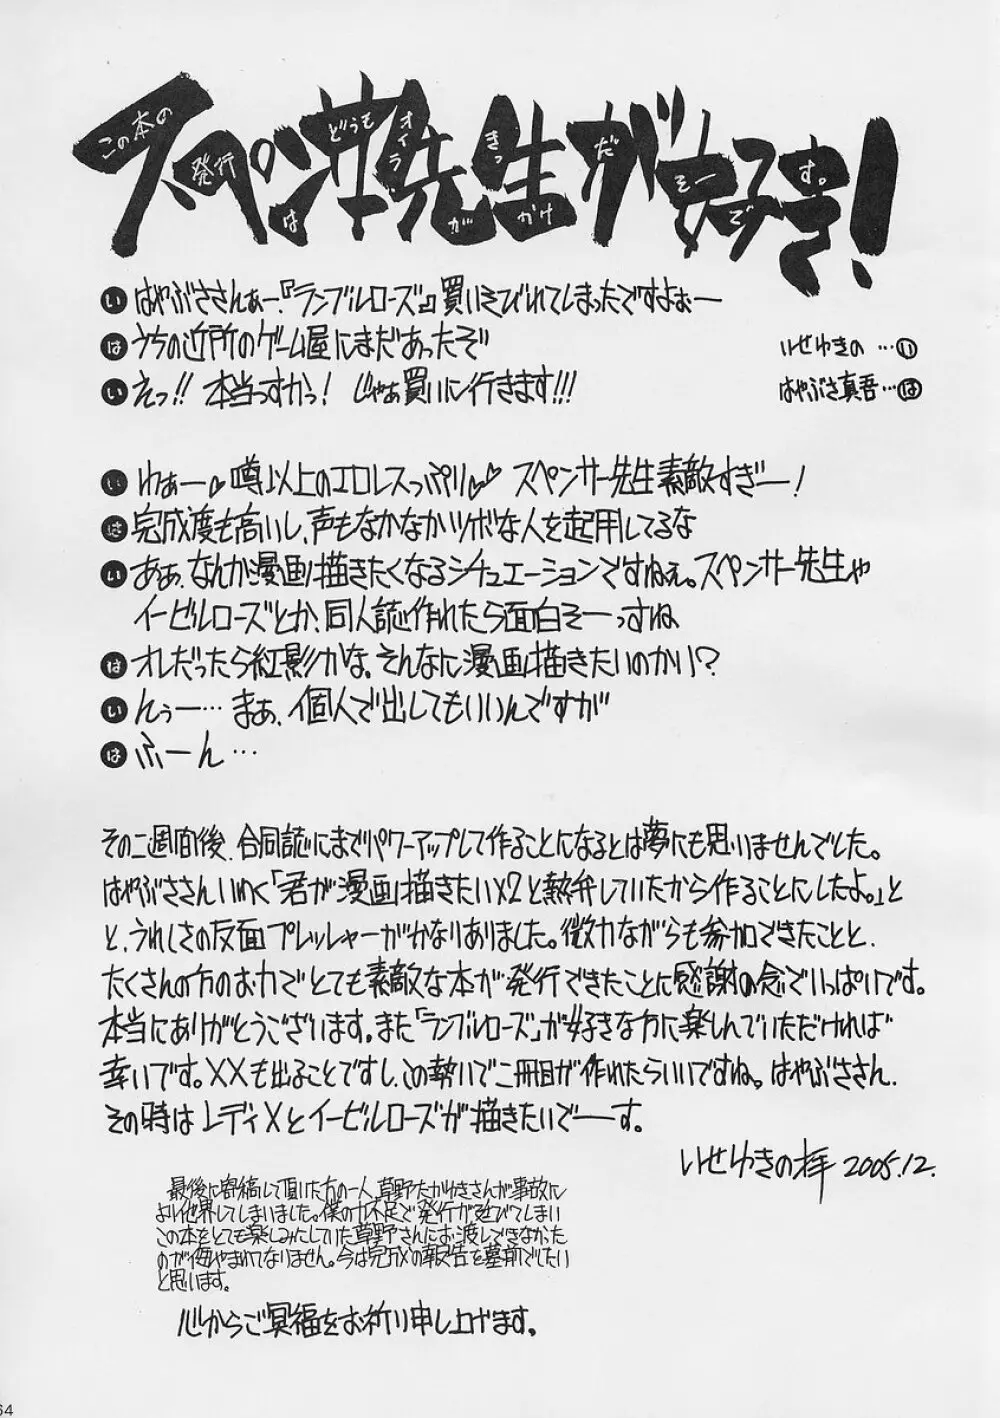 スペンサー先生が好き!
この本の
発行
は
どうも
オイラ
が
きっ
かけ
だ
そー
で
す。
い はゃぶささんぁー、『ランブルローズ』買いそびれてしまったですよぉー
は うちの近所のゲーム屋にまだあったぞ
い えっ!! 本当っすかっ! じゃぁ買いに行きます!!!
いせゆきの …い
はやぶさ真吾…は
い わぁー♡噂以上のエロレスっぷり♡♡ スペンサー先生素敵すぎー!
は 完成度も高いし、声もなかなかツボな人を起用してるな
い あぁ、なんか漫画描きたくなるシチュエーションですねぇ。スペンサー先生や
イービルローズとか、同人誌作れたら面白そーっすね
は オレだったら紅影かな。そんなに漫画描きたいのかい?
い んぅー… まぁ、個人で出してもいいんですが
は ふーん…
その二週間後、合同誌にまでパワーアップして作ることになるとは夢にも思いませんでした。
はやぶささんいわく「君が漫画描きたいx2と熱弁していたから作ることにしたよ。」と
と、うれしさの反面プレッシャーがかなりありました。微力ながらも参加できたことと、
たくさんの方のお力でとても素敵な本が発行できたことに感謝の念でいっぱいです。
本当にありがとうございます。また「ランブルローズ」が好きな方に楽しんでいただければ
幸いです。XXも出ることですし、この勢いで二冊目が作れたらいいですね。はやぶささん、
その時はレディXとイービルローズが描きたいでーす。
いせゆきの拝 2005.12.
最後に寄稿して頂いた方の一人、草野たかゆきさんが事故に
より他界してしまいました。僕の力不足で発行が延びてしまい
この本をとても楽しみにしていた草野さんにお渡しできなかった
のが悔やまれてなりません。今は完成の報告を墓前でしたい
と思います。
心からご冥福をお祈り申し上げます。
64